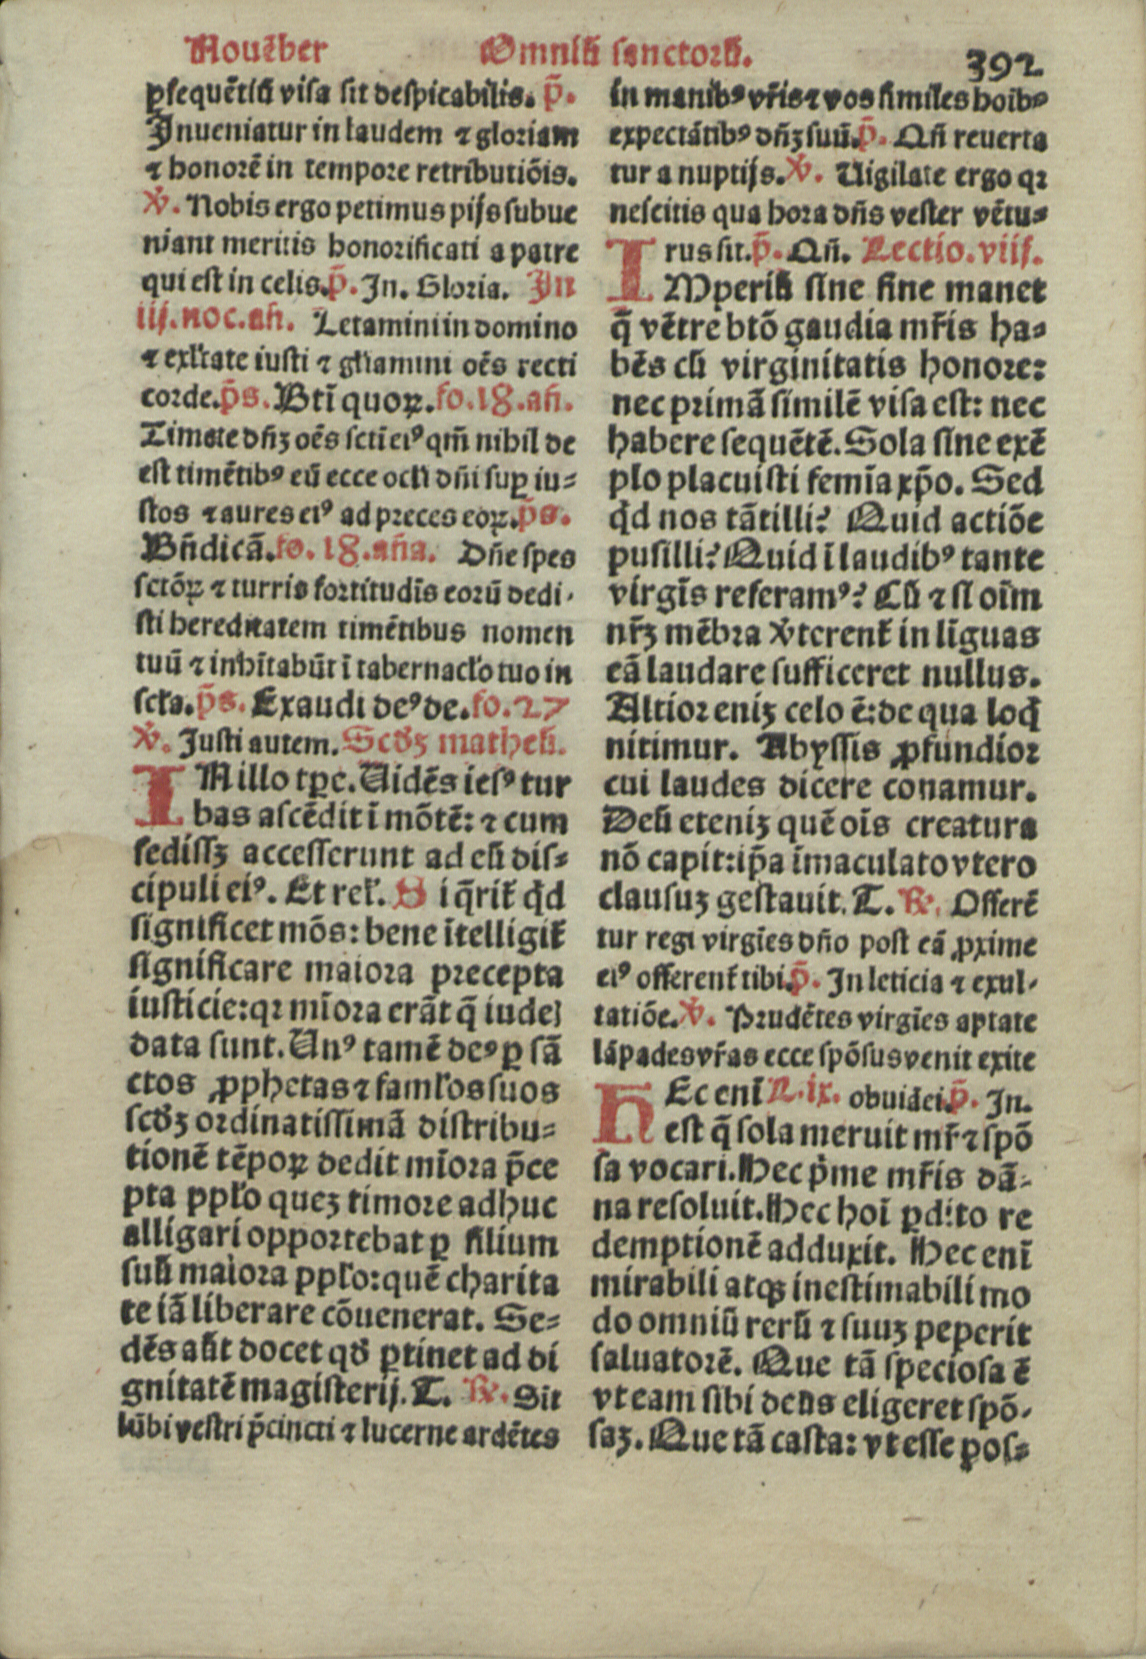 Nouẽber Omniũ sanctorũ. 392
ꝑsequẽtiũ visa sit despicabilis. p̃.
Inueniatur in laudem ⁊ gloriam
⁊ honorẽ in tempore retributiõis.
℣. Nobis ergo petimus pijs subue
niant meritis honorificati a patre
qui est in celis. p̃. In. Gloria. In
iij. noc. añ. Letamini in domino
⁊ exl̃tate iusti ⁊ gl̃iamini oẽs recti
corde. p̃s. Btĩ quoꝝ. fo. 18. añ.
Timete dñȝ oẽs sctĩ eiꝰ qm̃ nihil de
est timẽtibꝰ eũ ecce ocl̃i dñi suꝑ iu-
stos ⁊ aures eiꝰ ad preces eoꝝ. p̃s.
Bñdicã. fo. 18. aña. Dñe spes
sctõꝝ ⁊ turris fortitudĩs eorũ dedi-
sti hereditatem timẽtibus nomen
tuũ ⁊ inhĩtabũt ĩ tabernacl̃o tuo in
scl̃a. p̃s. Exaudi deꝰ de. fo. 27
℣. Justi autem. Scđȝ matheũ.
IN illo tꝑe. Uidẽs iesꝰ tur
bas ascẽdit ĩ mõtẽ: ⁊ cum
sedissȝ accesserunt ad eũ dis-
cipuli eiꝰ. Et rel̃. S i q̃rit̃ qđ
significet mõs: bene ĩtelligit̃
significare maiora precepta
iusticie: qꝛ mĩora erãt q̃ iudeis
data sunt. Unꝰ tamẽ deꝰ ꝑ sã
ctos ꝓphetas ⁊ faml̃os suos
scđȝ ordinatissimã distribu-
tionẽ tẽpoꝝ dedit mĩora p̃ce
pta ppl̃o queȝ timore adhuc
alligari opportebat ꝑ filium
suũ maiora ppl̃o: quẽ charita
te iã liberare cõuenerat. Se-
dẽs aũt docet qđ ꝑtinet ad di
gnitatẽ magisterij. T. ℟. Sit
lũbi vestri p̃cincti ⁊ lucerne ardẽtes
in manibꝰ vr̃is ⁊ vos similes hoibꝰ
expectãtibꝰ dñȝ suũ. p̃. Qñ reuerta
tur a nuptijs. ℣. Uigilate ergo qꝛ
nescitis qua hora dñs vester vẽtu-
rus sit. p̃. Qñ. Lectio. viij.
IMperiũ sine fine manet
q̃ vẽtre btõ gaudia mr̃is ha-
bẽs cũ virginitatis honore:
nec primã similẽ visa est: nec
habere sequẽtẽ. Sola sine exẽ
plo placuisti femĩa xp̃o. Sed
qđ nos tãtilli? Quid actiõe
pusilli? Quid ĩ laudibꝰ tante
virgĩs referamꝰ? Cũ ⁊ si oĩm
nr̃ȝ mẽbra ℣terent̃ in lĩguas
eã laudare sufficeret nullus.
Altior eniȝ celo ẽ: de qua loq̃
nitimur. Abyssis ꝓfundior
cui laudes dicere conamur.
Deũ eteniȝ quẽ oĩs creatura
nõ capit: ip̃a ĩmaculato vtero
clausuȝ gestauit. T. ℟. Offerẽ
tur regi virgĩes dño post eã ꝓxime
eiꝰ offerent̃ tibi. p̃. In leticia ⁊ exul-
tatiõe. ℣. Prudẽtes virgĩes aptate
lãpades vr̃as ecce spõsus venit exite
HEc enĩ L. ix. obuiã ei. p̃. In.
est q̃ sola meruit mr̃ ⁊ spõ
sa vocari. Hec p̃me mr̃is dã-
na resoluit. Hec hoĩ ꝑdito re
demptionẽ adduxit. Hec enĩ
mirabili atqꝫ inestimabili mo
do omniũ rerũ ⁊ suuȝ peperit
saluatorẽ. Que tã speciosa ẽ
vt eam sibi deus eligeret spõ-
saȝ. Que tã casta: vt esse ꝑos-